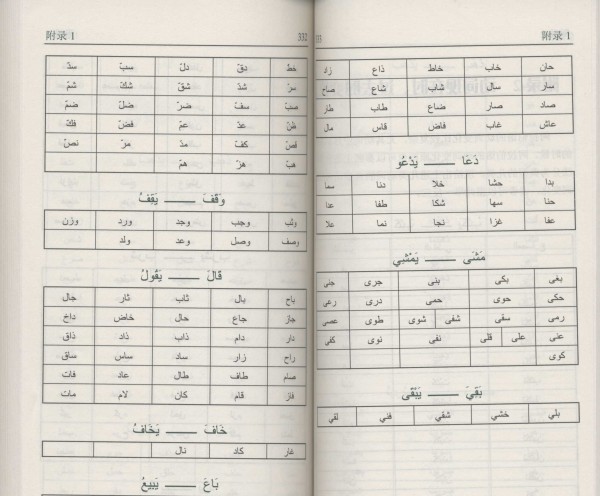 附录 1 332
خطّ دقّ دلّ سبّ سدّ
سرّ شدّ شقّ شكّ شمّ
صبّ سفّ ضرّ ضلّ ضمّ
ظنّ عدّ عمّ فضّ فكّ
قصّ كفّ مدّ مرّ نصّ
هبّ هزّ همّ
وَقَفَ ـــــ يَقِفُ
وثب وجب وجد ورد وزن
وصف وصل وعد ولد
قَالَ ـــــ يَقُولُ
باح بال تاب ثار جال
جاز جاع حال خاض داخ
دار دام ذاب ذاد ذاق
راح زار ساد ساس ساق
صام طاف طال عاد فات
فاز قام كان لام مات
خَافَ ـــــ يَخَافُ
غار كاد نال
بَاعَ ـــــ يَبِيعُ
附录 1
حان خاب خاط ذاع زاد
سار سال شاب شاع صاح
صاد صار ضاع طاب طار
عاش غاب فاض قاس مال
دَعَا ـــــ يَدْعُو
بدا حشا خلا دنا سما
حنا سها شكا طفا عدا
عفا غزا نجا نما علا
مَشَى ـــــ يَمْشِي
بغى بكى بنى جرى جنى
حكى حوى حمى درى رعى
رمى سقى شفى شوى طوى عصى
عنى غلى قلى نفى نوى كفى
كوى
بَقِيَ ـــــ يَبْقَى
بلي خشي شقي فني لقي